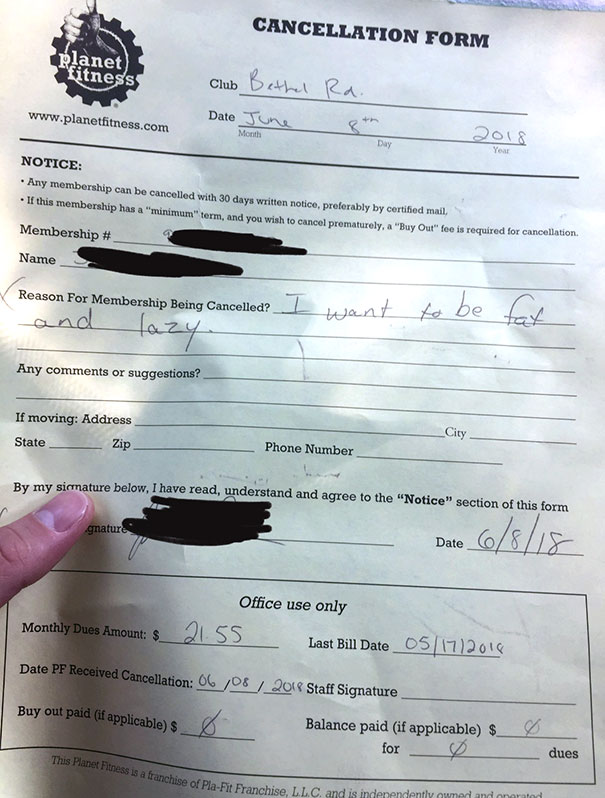 planet
fitness
CANCELLATION FORM
Club Bethel Rd.
www.planetfitness.com
Date June 8th 2018
Month Day Year
NOTICE:
• Any membership can be cancelled with 30 days written notice, preferably by certified mail.
• If this membership has a "minimum" term, and you wish to cancel prematurely, a "Buy Out" fee is required for cancellation.
Membership #
Name
Reason For Membership Being Cancelled? I want to be fat
and lazy.
Any comments or suggestions?
If moving: Address City
State Zip Phone Number
By my signature below, I have read, understand and agree to the "Notice" section of this form
gnature Date 6/8/18
Office use only
Monthly Dues Amount: $ 21.55 Last Bill Date 05/17/2018
Date PF Received Cancellation: 06/08/2018 Staff Signature
Buy out paid (if applicable) $ Ø Balance paid (if applicable) $ Ø
for Ø dues
This Planet Fitness is a franchise of Pla-Fit Franchise, L.L.C. and is independently owned and operated